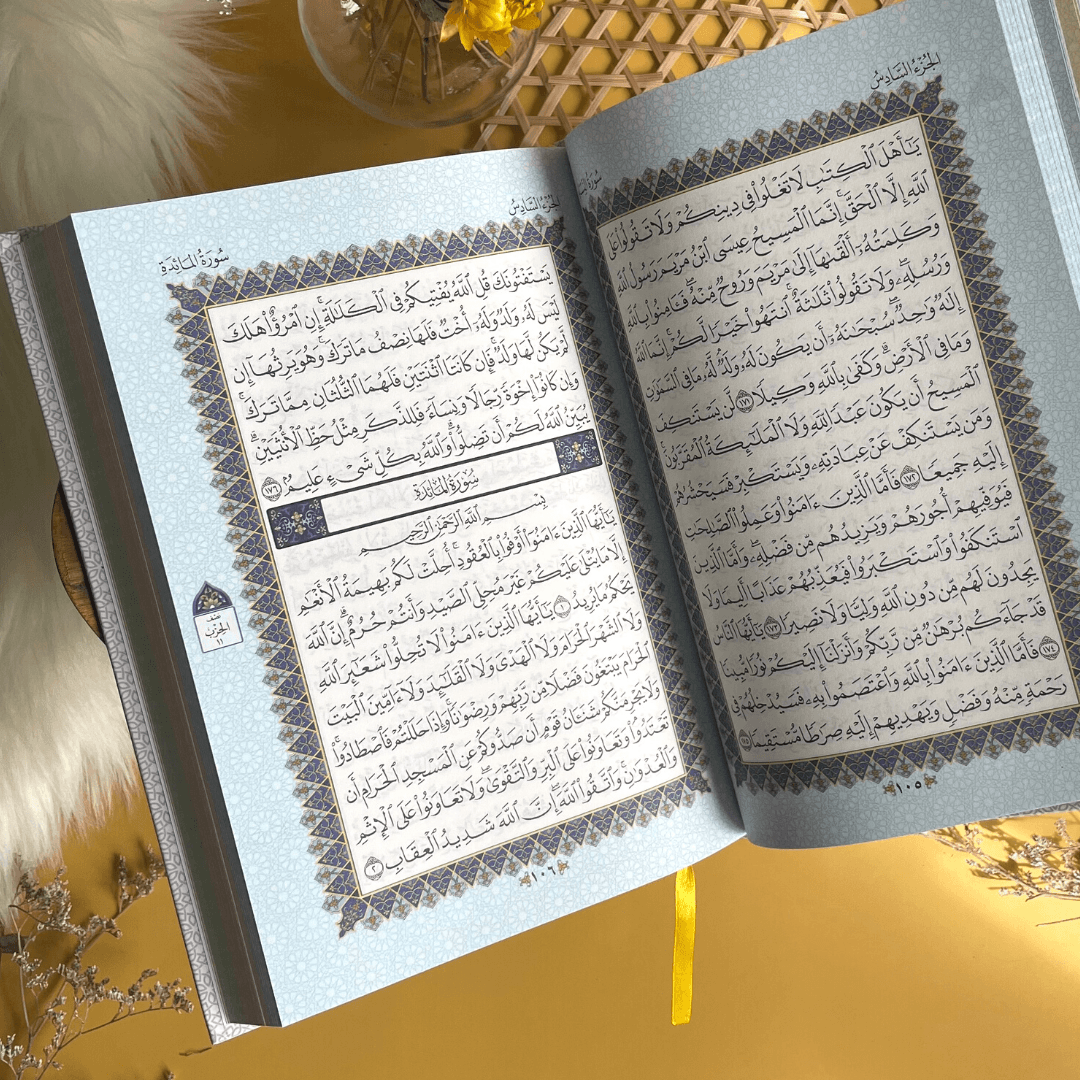 الجُزْءُ السَّادِسُ
سُورَةُ
يَٰٓأَهْلَ ٱلْكِتَٰبِ لَا تَغْلُوا۟ فِى دِينِكُمْ وَلَا تَقُولُوا۟ عَلَى
ٱللَّهِ إِلَّا ٱلْحَقَّ ۚ إِنَّمَا ٱلْمَسِيحُ عِيسَى ٱبْنُ مَرْيَمَ رَسُولُ ٱللَّهِ
وَكَلِمَتُهُۥٓ أَلْقَىٰهَآ إِلَىٰ مَرْيَمَ وَرُوحٌ مِّنْهُ ۖ فَـَٔامِنُوا۟ بِٱللَّهِ
وَرُسُلِهِۦ ۖ وَلَا تَقُولُوا۟ ثَلَٰثَةٌ ۚ ٱنتَهُوا۟ خَيْرًا لَّكُمْ ۚ إِنَّمَا ٱللَّهُ
إِلَٰهٌ وَٰحِدٌ ۖ سُبْحَٰنَهُۥٓ أَن يَكُونَ لَهُۥ وَلَدٌ ۘ لَّهُۥ مَا فِى ٱلسَّمَٰوَٰتِ
وَمَا فِى ٱلْأَرْضِ ۗ وَكَفَىٰ بِٱللَّهِ وَكِيلًا ١٧١ لَّن يَسْتَنكِفَ
ٱلْمَسِيحُ أَن يَكُونَ عَبْدًا لِّلَّهِ وَلَا ٱلْمَلَٰٓئِكَةُ ٱلْمُقَرَّبُونَ ۚ
وَمَن يَسْتَنكِفْ عَنْ عِبَادَتِهِۦ وَيَسْتَكْبِرْ فَسَيَحْشُرُهُمْ
إِلَيْهِ جَمِيعًا ١٧٢ فَأَمَّا ٱلَّذِينَ ءَامَنُوا۟ وَعَمِلُوا۟ ٱلصَّٰلِحَٰتِ
فَيُوَفِّيهِمْ أُجُورَهُمْ وَيَزِيدُهُم مِّن فَضْلِهِۦ ۖ وَأَمَّا ٱلَّذِينَ
ٱسْتَنكَفُوا۟ وَٱسْتَكْبَرُوا۟ فَيُعَذِّبُهُمْ عَذَابًا أَلِيمًا وَلَا
يَجِدُونَ لَهُم مِّن دُونِ ٱللَّهِ وَلِيًّا وَلَا نَصِيرًا ١٧٣ يَٰٓأَيُّهَا ٱلنَّاسُ
قَدْ جَآءَكُم بُرْهَٰنٌ مِّن رَّبِّكُمْ وَأَنزَلْنَآ إِلَيْكُمْ نُورًا مُّبِينًا
١٧٤ فَأَمَّا ٱلَّذِينَ ءَامَنُوا۟ بِٱللَّهِ وَٱعْتَصَمُوا۟ بِهِۦ فَسَيُدْخِلُهُمْ فِى
رَحْمَةٍ مِّنْهُ وَفَضْلٍ وَيَهْدِيهِمْ إِلَيْهِ صِرَٰطًا مُّسْتَقِيمًا ١٧٥
١٠٥
الجُزْءُ السَّادِسُ
سُورَةُ المَائِدَةِ
يَسْتَفْتُونَكَ قُلِ ٱللَّهُ يُفْتِيكُمْ فِى ٱلْكَلَٰلَةِ ۚ إِنِ ٱمْرُؤٌا۟ هَلَكَ
لَيْسَ لَهُۥ وَلَدٌ وَلَهُۥٓ أُخْتٌ فَلَهَا نِصْفُ مَا تَرَكَ ۚ وَهُوَ يَرِثُهَآ إِن
لَّمْ يَكُن لَّهَا وَلَدٌ ۚ فَإِن كَانَتَا ٱثْنَتَيْنِ فَلَهُمَا ٱلثُّلُثَانِ مِمَّا تَرَكَ ۚ
وَإِن كَانُوٓا۟ إِخْوَةً رِّجَالًا وَنِسَآءً فَلِلذَّكَرِ مِثْلُ حَظِّ ٱلْأُنثَيَيْنِ ۗ
يُبَيِّنُ ٱللَّهُ لَكُمْ أَن تَضِلُّوا۟ ۗ وَٱللَّهُ بِكُلِّ شَىْءٍ عَلِيمٌۢ ١٧٦
سُورَةُ المَائِدَةِ
بِسْمِ ٱللَّهِ ٱلرَّحْمَٰنِ ٱلرَّحِيمِ
يَٰٓأَيُّهَا ٱلَّذِينَ ءَامَنُوٓا۟ أَوْفُوا۟ بِٱلْعُقُودِ ۚ أُحِلَّتْ لَكُم بَهِيمَةُ ٱلْأَنْعَٰمِ
إِلَّا مَا يُتْلَىٰ عَلَيْكُمْ غَيْرَ مُحِلِّى ٱلصَّيْدِ وَأَنتُمْ حُرُمٌ ۗ إِنَّ ٱللَّهَ
يَحْكُمُ مَا يُرِيدُ ١ يَٰٓأَيُّهَا ٱلَّذِينَ ءَامَنُوا۟ لَا تُحِلُّوا۟ شَعَٰٓئِرَ ٱللَّهِ
وَلَا ٱلشَّهْرَ ٱلْحَرَامَ وَلَا ٱلْهَدْىَ وَلَا ٱلْقَلَٰٓئِدَ وَلَآ ءَآمِّينَ ٱلْبَيْتَ
ٱلْحَرَامَ يَبْتَغُونَ فَضْلًا مِّن رَّبِّهِمْ وَرِضْوَٰنًا ۚ وَإِذَا حَلَلْتُمْ فَٱصْطَادُوا۟ ۚ
وَلَا يَجْرِمَنَّكُمْ شَنَـَٔانُ قَوْمٍ أَن صَدُّوكُمْ عَنِ ٱلْمَسْجِدِ ٱلْحَرَامِ أَن
تَعْتَدُوا۟ ۘ وَتَعَاوَنُوا۟ عَلَى ٱلْبِرِّ وَٱلتَّقْوَىٰ ۖ وَلَا تَعَاوَنُوا۟ عَلَى ٱلْإِثْمِ
وَٱلْعُدْوَٰنِ ۚ وَٱتَّقُوا۟ ٱللَّهَ ۖ إِنَّ ٱللَّهَ شَدِيدُ ٱلْعِقَابِ ٢
نصف
الحزب
١١
١٠٦